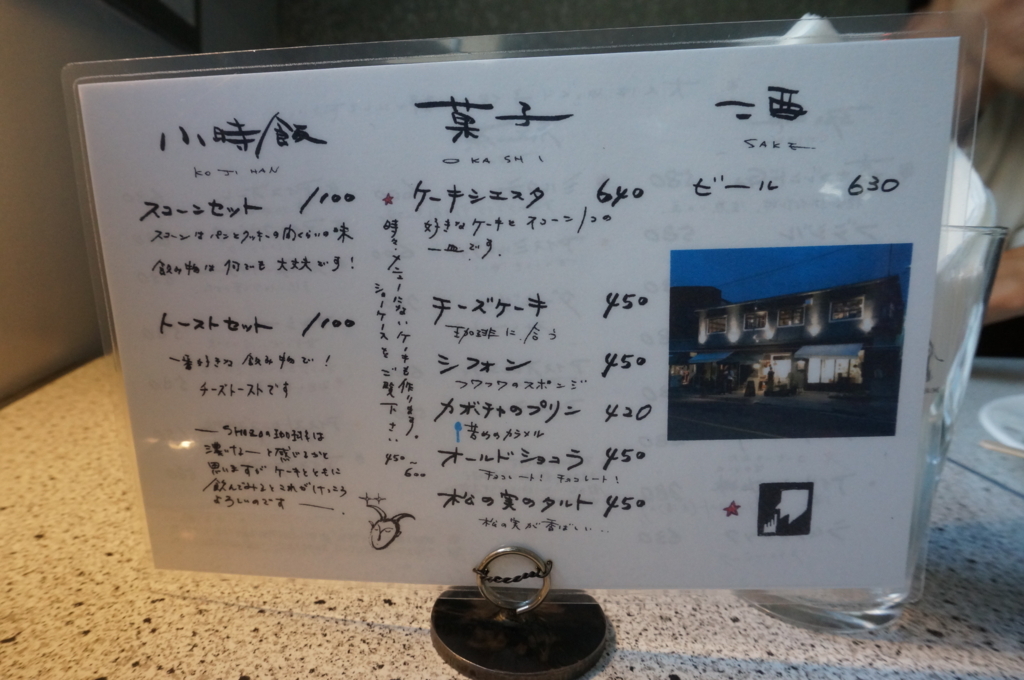 小時飯
KOJI HAN
スコーンセット 1100
スコーンは パンとクッキーの間くらいの味
飲み物は 何でも 大丈夫です!
トーストセット 1100
一番好きな 飲み物で!
チーズトーストです
SHOZOの珈琲は
濃いなーと感じるかと
思いますが ケーキとともに
飲んでみると これがけっこう
よろしいのです
菓子
OKASHI
ケーキシエスタ 640
好きなケーキと スコーン1つの
一皿です。
時々メニューにないケーキも作ります。
ショーケースをご覧下さい
450〜
600
チーズケーキ 450
珈琲に合う
シフォン 450
フワフワのスポンジ
カボチャのプリン 420
苦めのカラメル
オールドショコラ 450
チョコレート! チョコレート!
松の実のタルト 450
松の実が香ばしい...
酒
SAKE
ビール 630